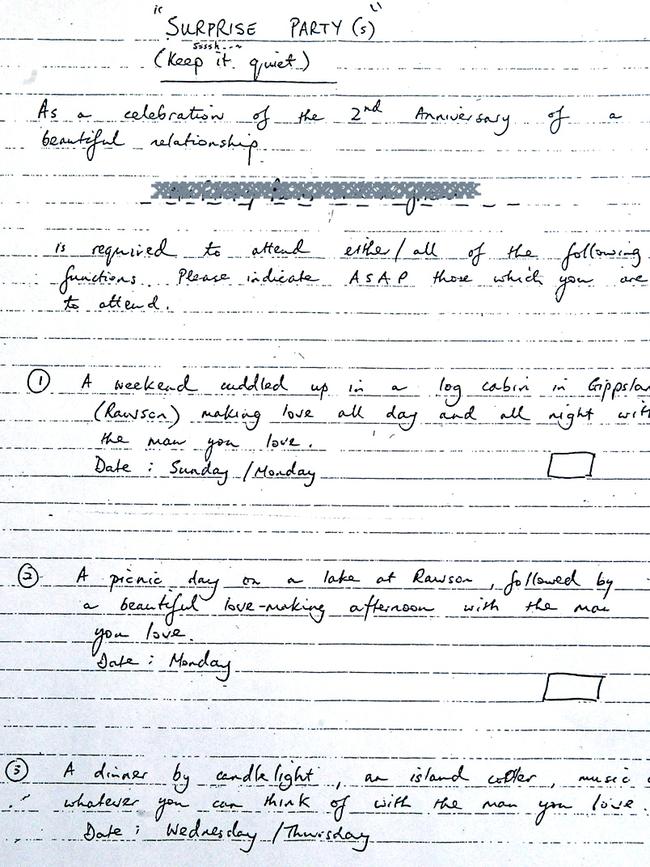 "SURPRISE PARTY(s)"
ssssh...
(Keep it quiet)
As a celebration of the 2nd Anniversary of a
beautiful relationship
is required to attend either/all of the following
functions. Please indicate ASAP those which you are
to attend.
① A weekend cuddled up in a log cabin in Gippsla
(Rawson) making love all day and all night with
the man you love.
Date : Sunday / Monday
② A picnic day on a lake at Rawson, followed by
a beautiful love-making afternoon with the man
you love.
Date : Monday
③ A dinner by candlelight, an island , music
whatever you can think of with the man you love.
Date : Wednesday / Thursday